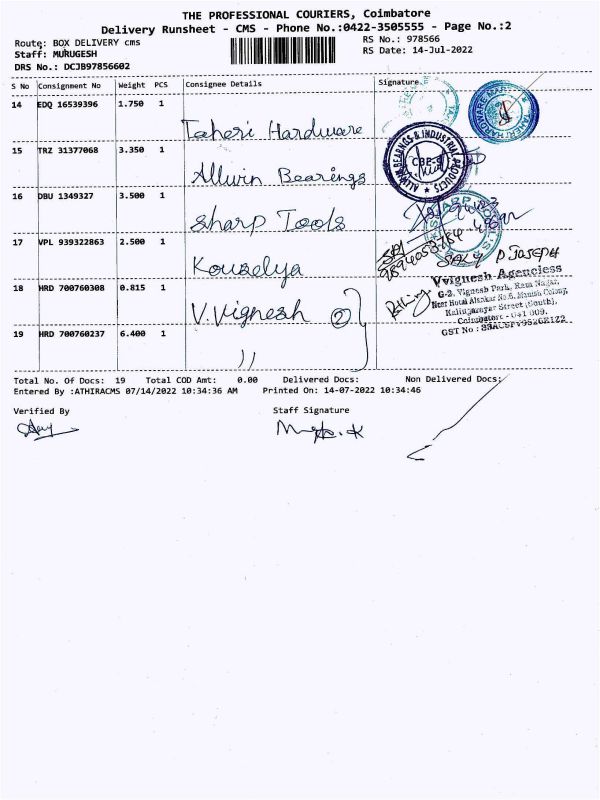 THE PROFESSIONAL COURIERS, Coimbatore
Delivery Runsheet - CMS - Phone No.:0422-3505555 - Page No.:2
Route: BOX DELIVERY cms
RS No.: 978566
Staff: MURUGESH
RS Date: 14-Jul-2022
DRS No.: DCJB97856602
S No Consignment No Weight PCS Consignee Details Signature
14 EDQ 16539396 1.750 1
Taheri Hardware
15 TRZ 31377068 3.350 1
Allwin Bearings
16 DBU 1349327 3.500 1
Sharp Tools
17 VPL 939322863 2.500 1
Kouselya
18 HRD 700760308 0.815 1
V.Vignesh ②
19 HRD 700760237 6.400 1
"
TAHERI HARDWARE MART
ALLWIN BEARINGS & INDUSTRIAL PRODUCTS
CBE-9
SHARP TOOLS
P JOSEPH
Vvignesh Agenciess
G-2, Vignesh Park, Ram Nagar,
Near Hotel Alankar No.6,
Kalingarayar Street (South),
Coimbatore - 641 009.
GST No :
Total No. Of Docs: 19 Total COD Amt: 0.00 Delivered Docs: Non Delivered Docs:
Entered By :ATHIRACMS 07/14/2022 10:34:36 AM Printed On: 14-07-2022 10:34:46
Verified By Staff Signature